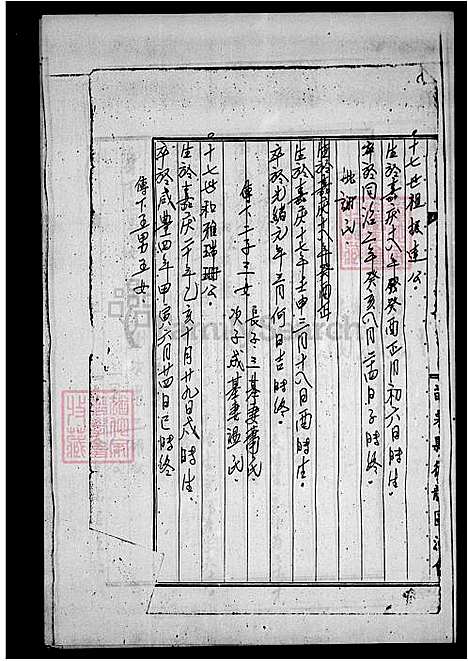 十七世祖振連公。
生於嘉庆十八年癸酉正月初六日時生。
卒於同治二年癸亥八月二四日子時終。
妣謝氏。
生於嘉庆十八年癸酉
生於嘉庆十七年壬申二月十八日酉時生
卒於光緒元年二月何日吉時終。
傳下二子三女
長子立基妻蕭氏
次子成基妻温氏。
十七世和雅瑞珊公。
生於嘉庆二十年乙亥十月廿九日戌時生。
卒於咸豊四年甲寅六月廿四日巳時終
傳下五男五女